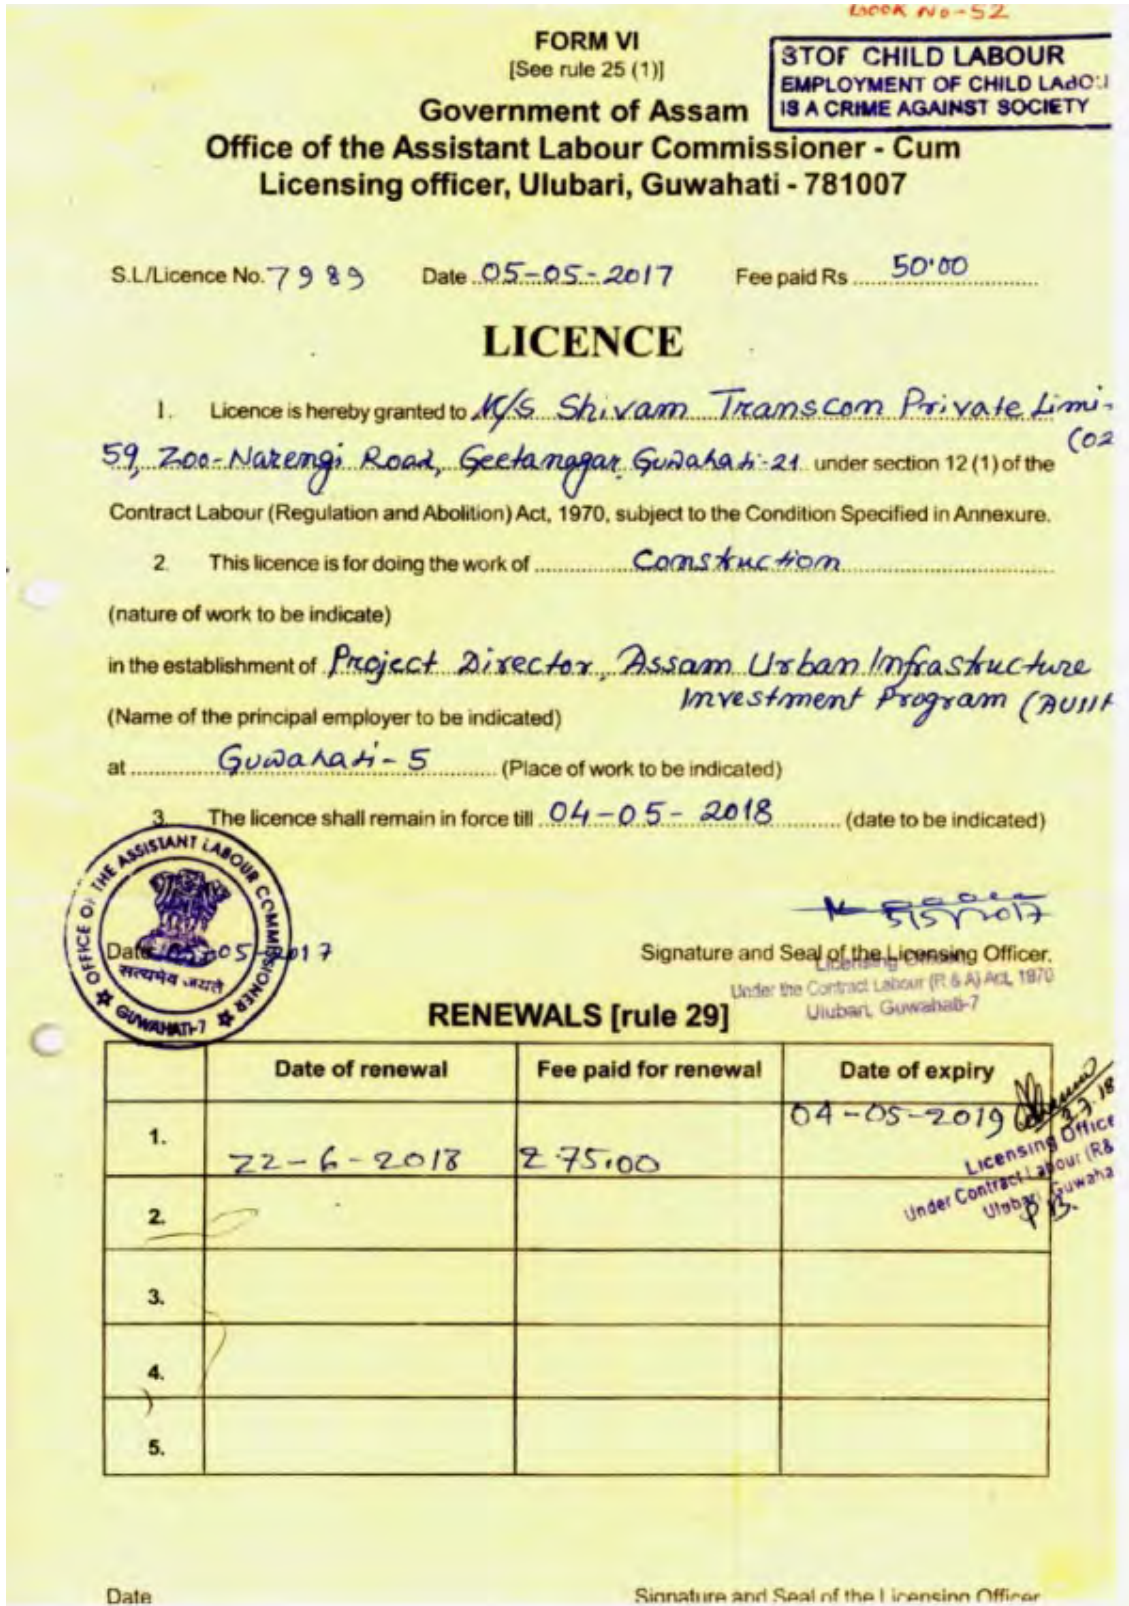 BOOK No-52
FORM VI
[See rule 25 (1)]
STOP CHILD LABOUR
EMPLOYMENT OF CHILD LABOU
IS A CRIME AGAINST SOCIETY
Government of Assam
Office of the Assistant Labour Commissioner - Cum
Licensing officer, Ulubari, Guwahati - 781007
S.L/Licence No. 7989 Date 05-05-2017 Fee paid Rs 50.00
LICENCE
1. Licence is hereby granted to M/S Shivam Transcom Private Limi-
(02
59, Zoo-Narengi Road, Geetanagar, Guwahati-21 under section 12 (1) of the
Contract Labour (Regulation and Abolition) Act, 1970, subject to the Condition Specified in Annexure.
2. This licence is for doing the work of Construction
(nature of work to be indicate)
in the establishment of Project Director, Assam Urban Infrastructure
Investment Program (AUIIP
(Name of the principal employer to be indicated)
at Guwahati-5 (Place of work to be indicated)
3. The licence shall remain in force till 04-05-2018 (date to be indicated)
OFFICE OF THE ASSISTANT LABOUR COMMISSIONER
सत्यमेव जयते
GUWAHATI-7
5/5/2017
Date 05-05-2017 Signature and Seal of the Licensing Officer.
Licensing Officer
Under the Contract Labour (R & A) Act, 1970
Ulubari, Guwahati-7
RENEWALS [rule 29]
Date of renewal Fee paid for renewal Date of expiry
1. 22-6-2018 ₹75.00 04-05-2019
3.7.18
Licensing Office
Under Contract Labour (R&
Ulubari, Guwaha
2.
3.
4.
5.
Date Signature and Seal of the Licensing Officer